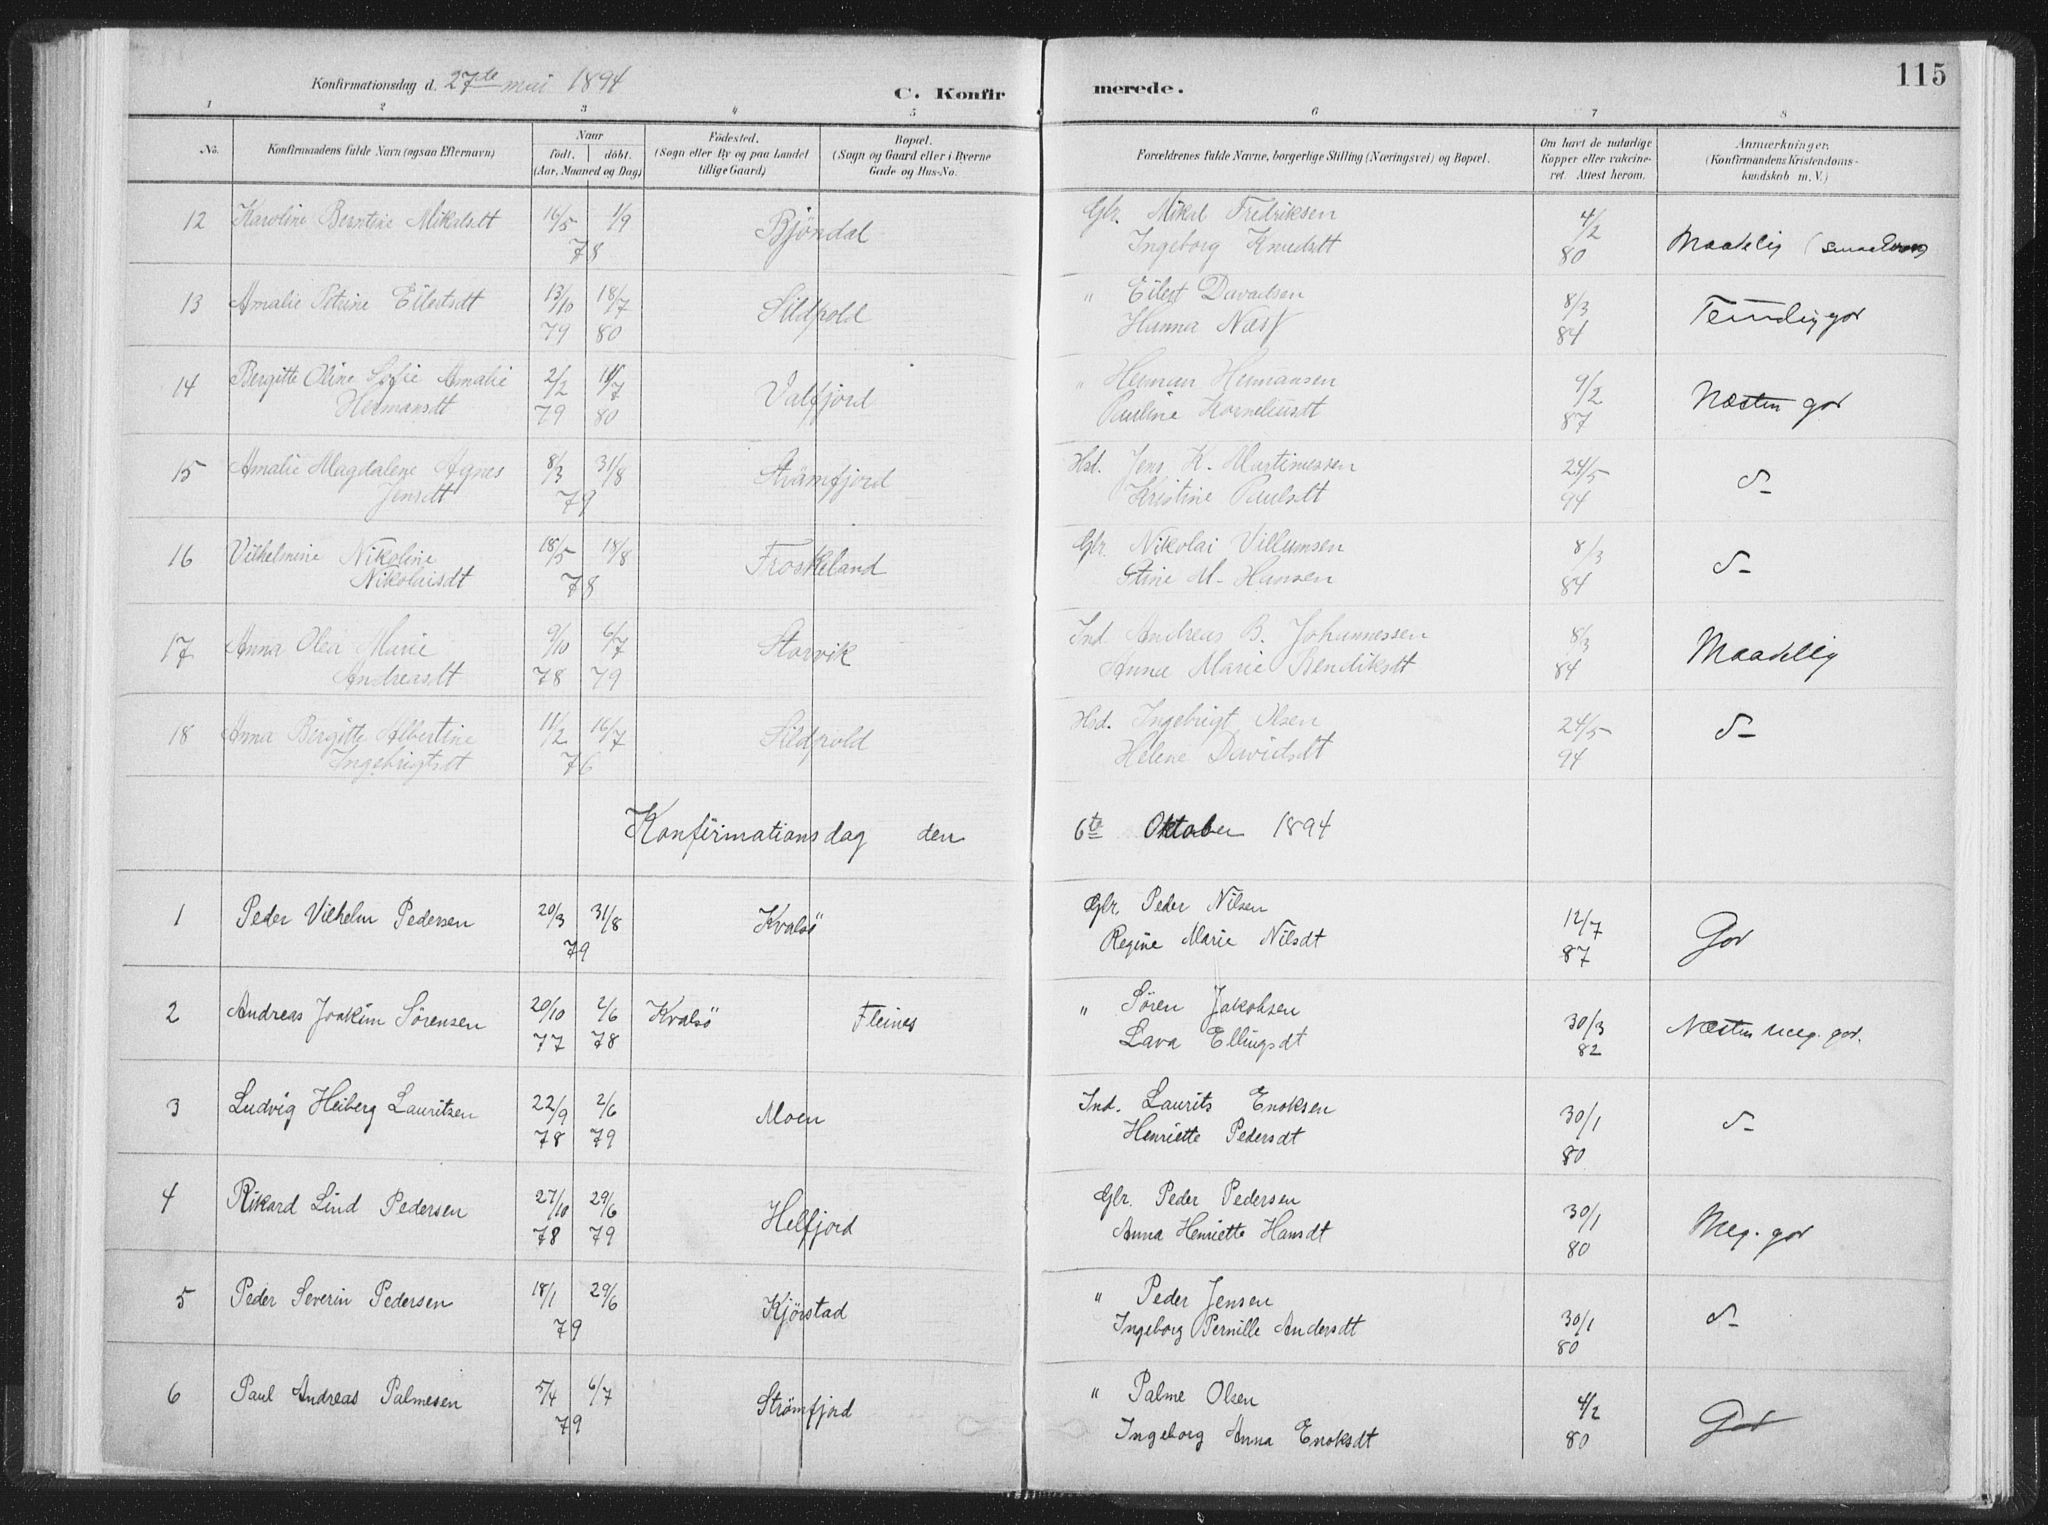 115
Konfirmationsdag d. 27de mai 1894
C. Konfirmerede.
1 2 3 4 5 6 7 8
No.
Konfirmandens fulde Navn (ogsaa Efternavn)
Naar
födt. döbt.
(Aar, Maaned og Dag)
Födested.
(Sogn eller By og paa Landet
tillige Gaard)
Bopæl.
(Sogn og Gaard eller i Byerne
Gade og Hus-No.
Forældrenes fulde Navne, borgerlige Stilling (Næringsvei) og Bopæl.
Om havt de naturlige
Kopper eller vakcine-
ret. Attest herom.
Anmærkninger.
(Konfirmandens Kristendoms-
kundskab m. V.)
12 Karoline Berntine Mikalsdt 16/5 1/9 Bjöndal Gbr. Mikal Fredriksen 4/2 Maadelig
78 Ingeborg Knudsdt 80
13 Amalie Petrine Eilertsdt 13/10 18/7 Sildpold " Eilert Davadsen 8/3 Temmelig god
79 80 Hanna Næss 84
14 Bergitte Oline Sofie Amalie 2/2 11/7 Valfjord " Herman Hermansen 9/2 Næsten god
Hermansdt 79 80 Pauline Korneliusdt 87
15 Amalie Magdalene Agnes 8/3 31/8 Strömfjord Hsd. Jens K. Martinussen 24/5 d-
Jensdt 79 Kristine Paulsdt 94
16 Vilhelmine Nikoline 18/5 18/8 Froskeland Gbr. Nikolai Villumsen 8/3 d-
Nikolaisdt 78 Stine M. Hansen 84
17 Anna Olea Marie 9/10 6/7 Storvik Ind. Andreas B. Johannessen 8/3 Maadelig
Andreasdt 78 79 Anna Marie Bendiksdt 84
18 Anna Bergitte Albertine 11/2 16/7 Sildpold Hsd. Ingebrigt Olsen 24/5 d-
Ingebrigtsdt 76 Helene Davidsdt 94
Konfirmationsdag den 6te Oktober 1894
1 Peder Vilhelm Pedersen 20/3 31/8 Kvalsö Gbr. Peder Nilsen 12/7 God
79 Regine Marie Nilsdt 87
2 Andreas Joakim Sörensen 20/10 2/6 Kvalsö Fleines " Sören Jakobsen 30/3 Næsten meg. god.
77 78 Lava Ellingsdt 82
3 Ludvig Heiberg Lauritsen 22/9 2/6 Moen Ind. Laurits Enoksen 30/1 d-
78 79 Henriette Pedersdt 80
4 Rikard Lind Pedersen 27/10 29/6 Helfjord Gbr. Peder Pedersen 30/1 Meg. god
78 79 Anna Henriette Hansdt 80
5 Peder Severin Pedersen 18/1 29/6 Kjørstad " Peder Jensen 30/1 d-
79 Ingeborg Pernille Andersdt 80
6 Paul Andreas Palmesen 5/4 6/7 Strømfjord " Palme Olsen 4/2 God
79 Ingeborg Anna Enoksdt 80